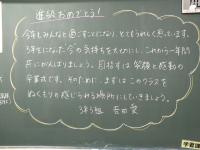 進級おめでとう！
今年もみんなと過ごすことになり、とてもうれしく思っています。
3年生になった今の気持ちを大切にし、これから一年間
共にがんばりましょう。目指すは笑顔と感動の
卒業式です。そのために、まずはこのクラスを
ぬくもりの感じられる場所にしていきましょう。
3年5組 吉田愛